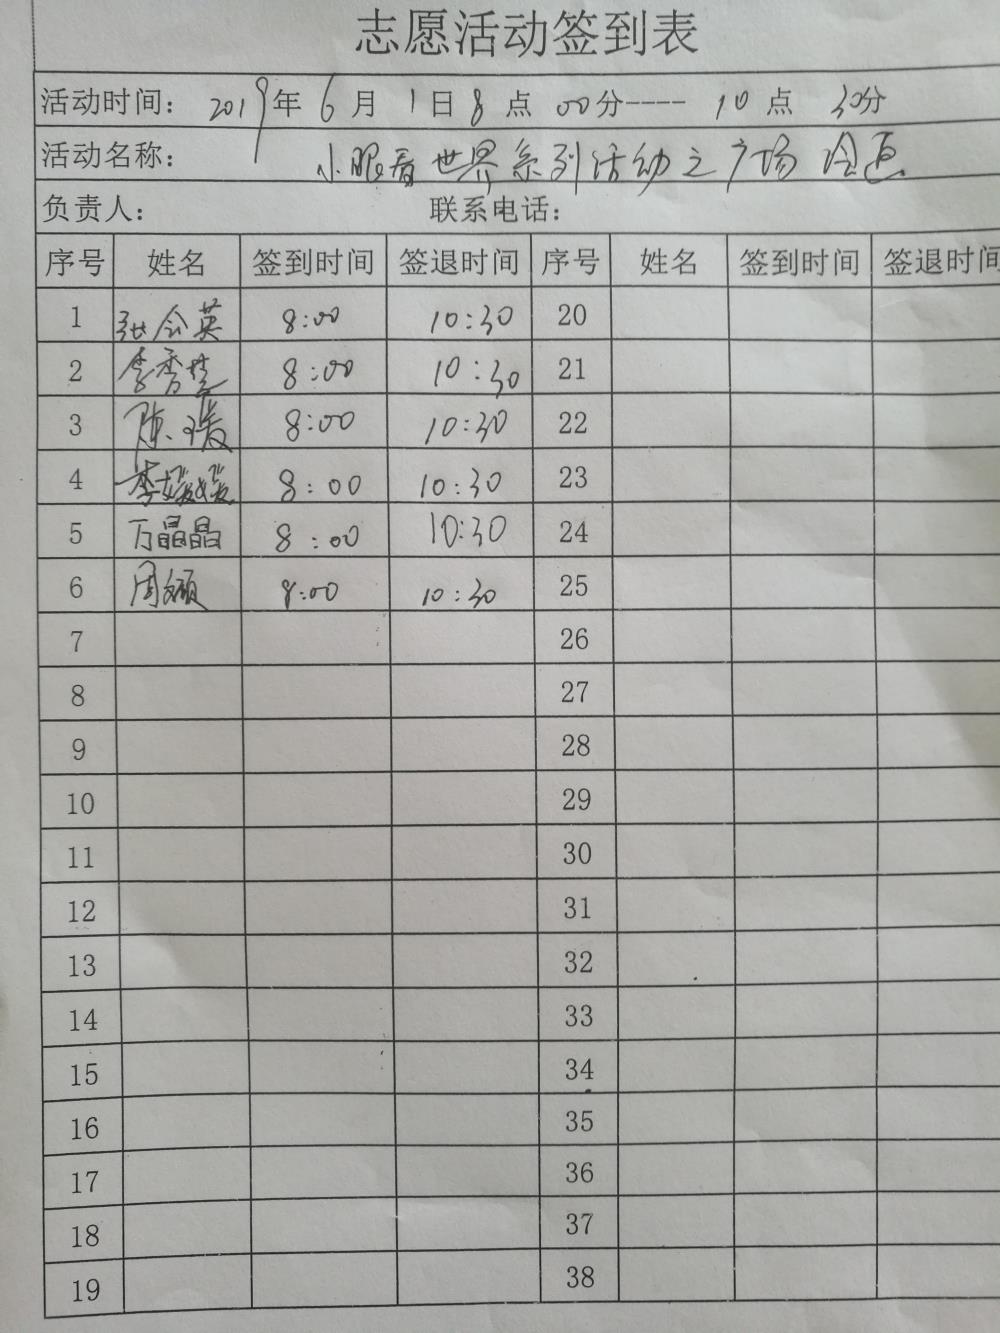 志愿活动签到表
活动时间: 2019年 6月 1日 8点 00分---- 10点 30分
活动名称: 小眼看世界系列活动之广场绘画
负责人: 联系电话:
序号 姓名 签到时间 签退时间 序号 姓名 签到时间 签退时间
1 张会英 8:00 10:30 20
2 李秀 8:00 10:30 21
3 陈瑷 8:00 10:30 22
4 李媛媛 8:00 10:30 23
5 万晶晶 8:00 10:30 24
6 周 8:00 10:30 25
7 26
8 27
9 28
10 29
11 30
12 31
13 32
14 33
15 34
16 35
17 36
18 37
19 38